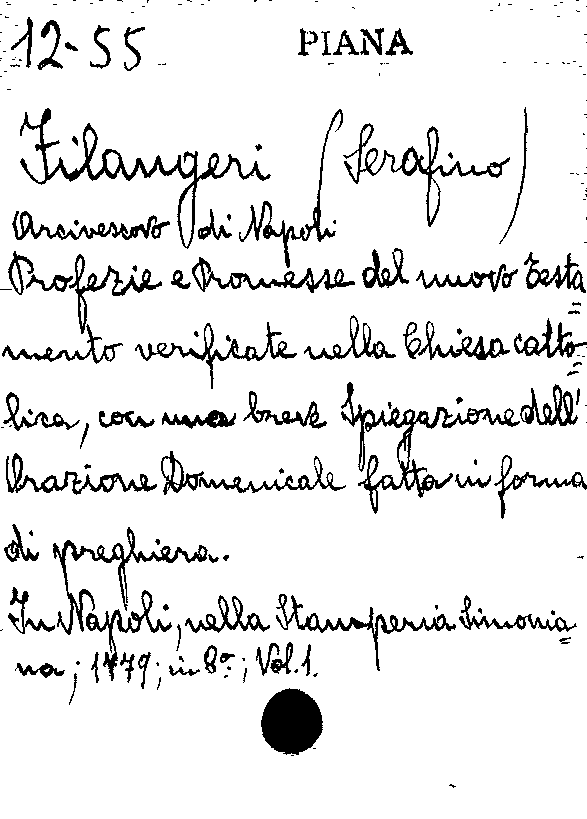 12-55 PIANA
Filangeri (Serafino)
Arcivescovo di Napoli
Profezie e Promesse del nuovo Testa=
mento verificate nella Chiesa catto=
lica, con una breve Spiegazione dell'
Orazione Domenicale fatta in forma
di preghiera.
In Napoli, nella Stamperia Simonia=
na; 1779; in 8º; Vol. 1.